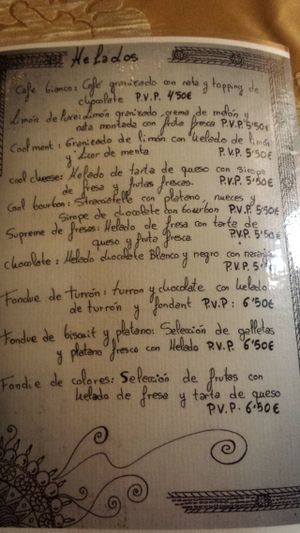 Helados
Café bianco: Café granizado con nata y topping de
chocolate P.V.P. 4'50€
Limón de luxe: Limón granizado crema de melón y
nata montada con fruta fresca P.V.P. 5'50€
Cool ment: Granizado de limón con helado de limón
y licor de menta P.V.P. 5'50€
Cool cheese: Helado de tarta de queso con sirope
de fresa y frutas frescas. P.V.P. 5'50€
Cool bourbon: Stracciatella con platano, nueces y
sirope de chocolate con bourbon P.V.P. 5'50€
Supreme de fresas: Helado de fresa con tarta de
queso y fruta fresca P.V.P. 5'50€
Chocolate: Helado chocolate Blanco y negro con naranja
P.V.P.
Fondue de Turrón: turron y chocolate con helado
de turrón y fondant P.V.P: 6'50€
Fondue de biscuit y platano: Selección de galletas
y platano fresco con Helado P.V.P. 6'50€
Fondie de colores: Selección de frutas con
helado de fresa y tarta de queso
P.V.P. 6'50€